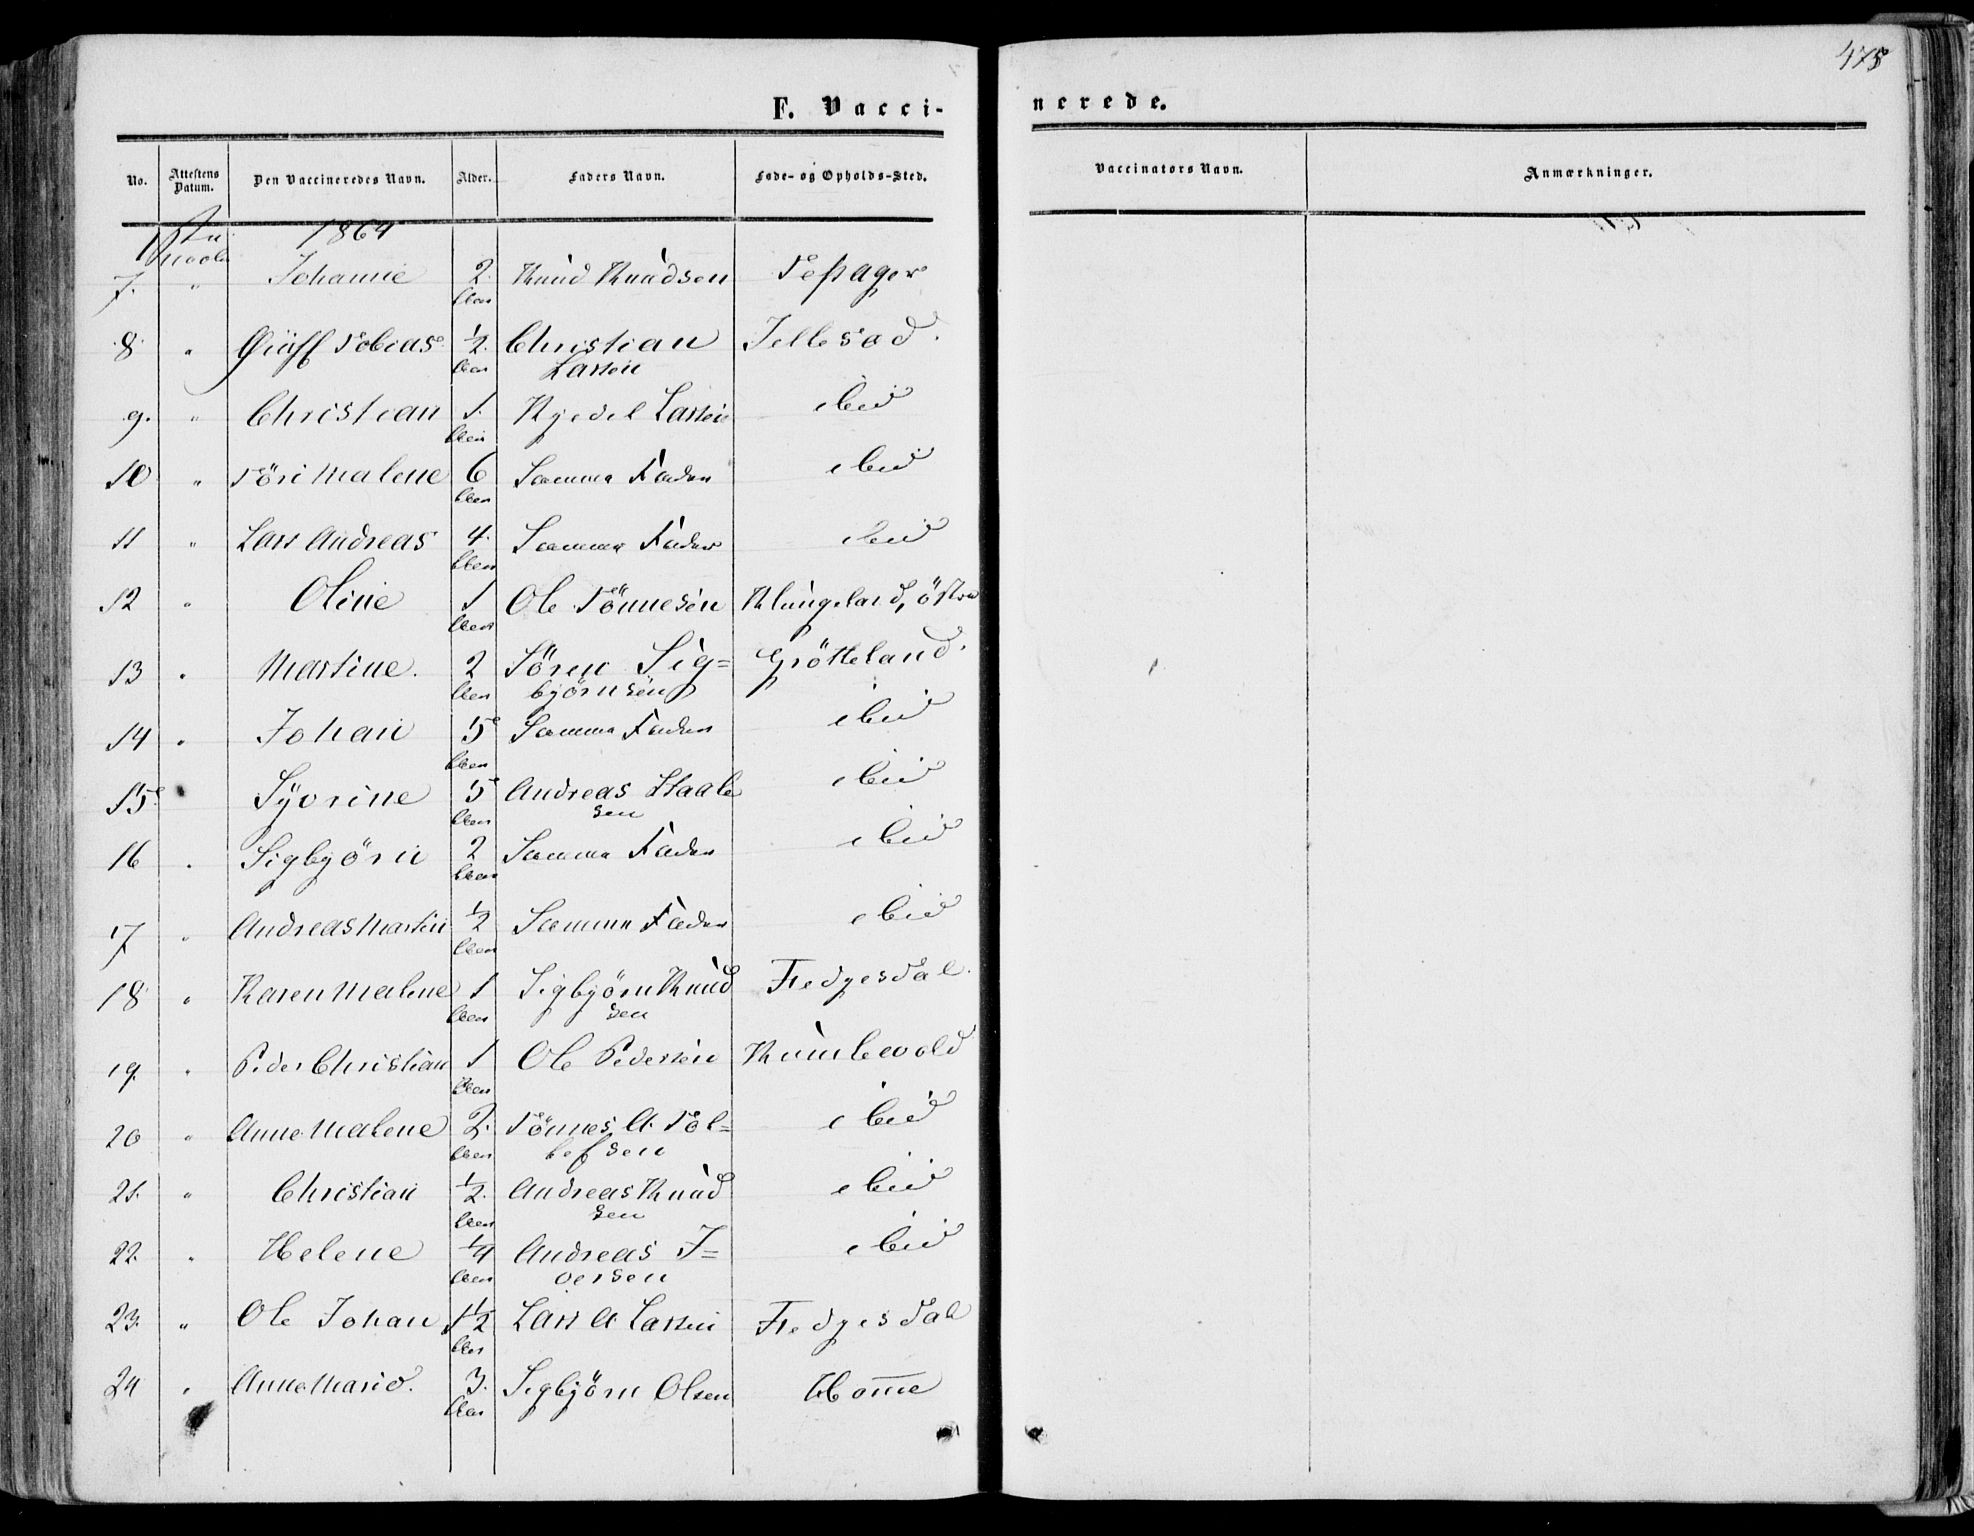 478
F. Vacci-
nerede.
No.
Attestens Datum.
Den Vaccineredes Navn.
Alder.
Faders Navn.
Føde- og Opholds-Sted.
Vaccinators Navn.
Anmærkninger.
1864
7. " Johanne 2 Knud Knudsen
Aar
8 " Tobias ½ Christian
Aar Larsen
9. " Christian 1. Kjedel Larsen ibid
Aar
10 " Töri Malene 6 Samme Fader ibid
Aar
11 " Lars Andreas 4. Samme Fader ibid
Aar
12 " Oline 1 Ole Tönnesen Klungeland, östre
Aar
13 " Martine. 2 Sören Sig= Grötteland.
Aar björnsen
14 " Johan 5 Samme Fader ibid
Aar
15 " Syvrine 5 Andreas Staale ibid
Aar sen
16 " Sigbjörn 2 Samme Fader ibid
Aar
17 " Andreas Martin ½ Samme Fader ibid
Aar
18 " Karen Malene 1 Sigbjörn Knud Fredgesdal
Aar sen
19. " Peder Christian 1 Ole Pedersen
Aar
20 " Anne Malene 2. Tönnes A. Tol= ibid
Aar lefsen
21. " Christian ½. Andreas Knud ibid
Aar sen
22. " Helene ¼ Andreas I= ibid
Aar versen
23. " Ole Johan 1½ Lars A Larsen Fredgesdal
Aar
24 " Anne Marie. 3. Sigbjörn Olsen Home
Aar